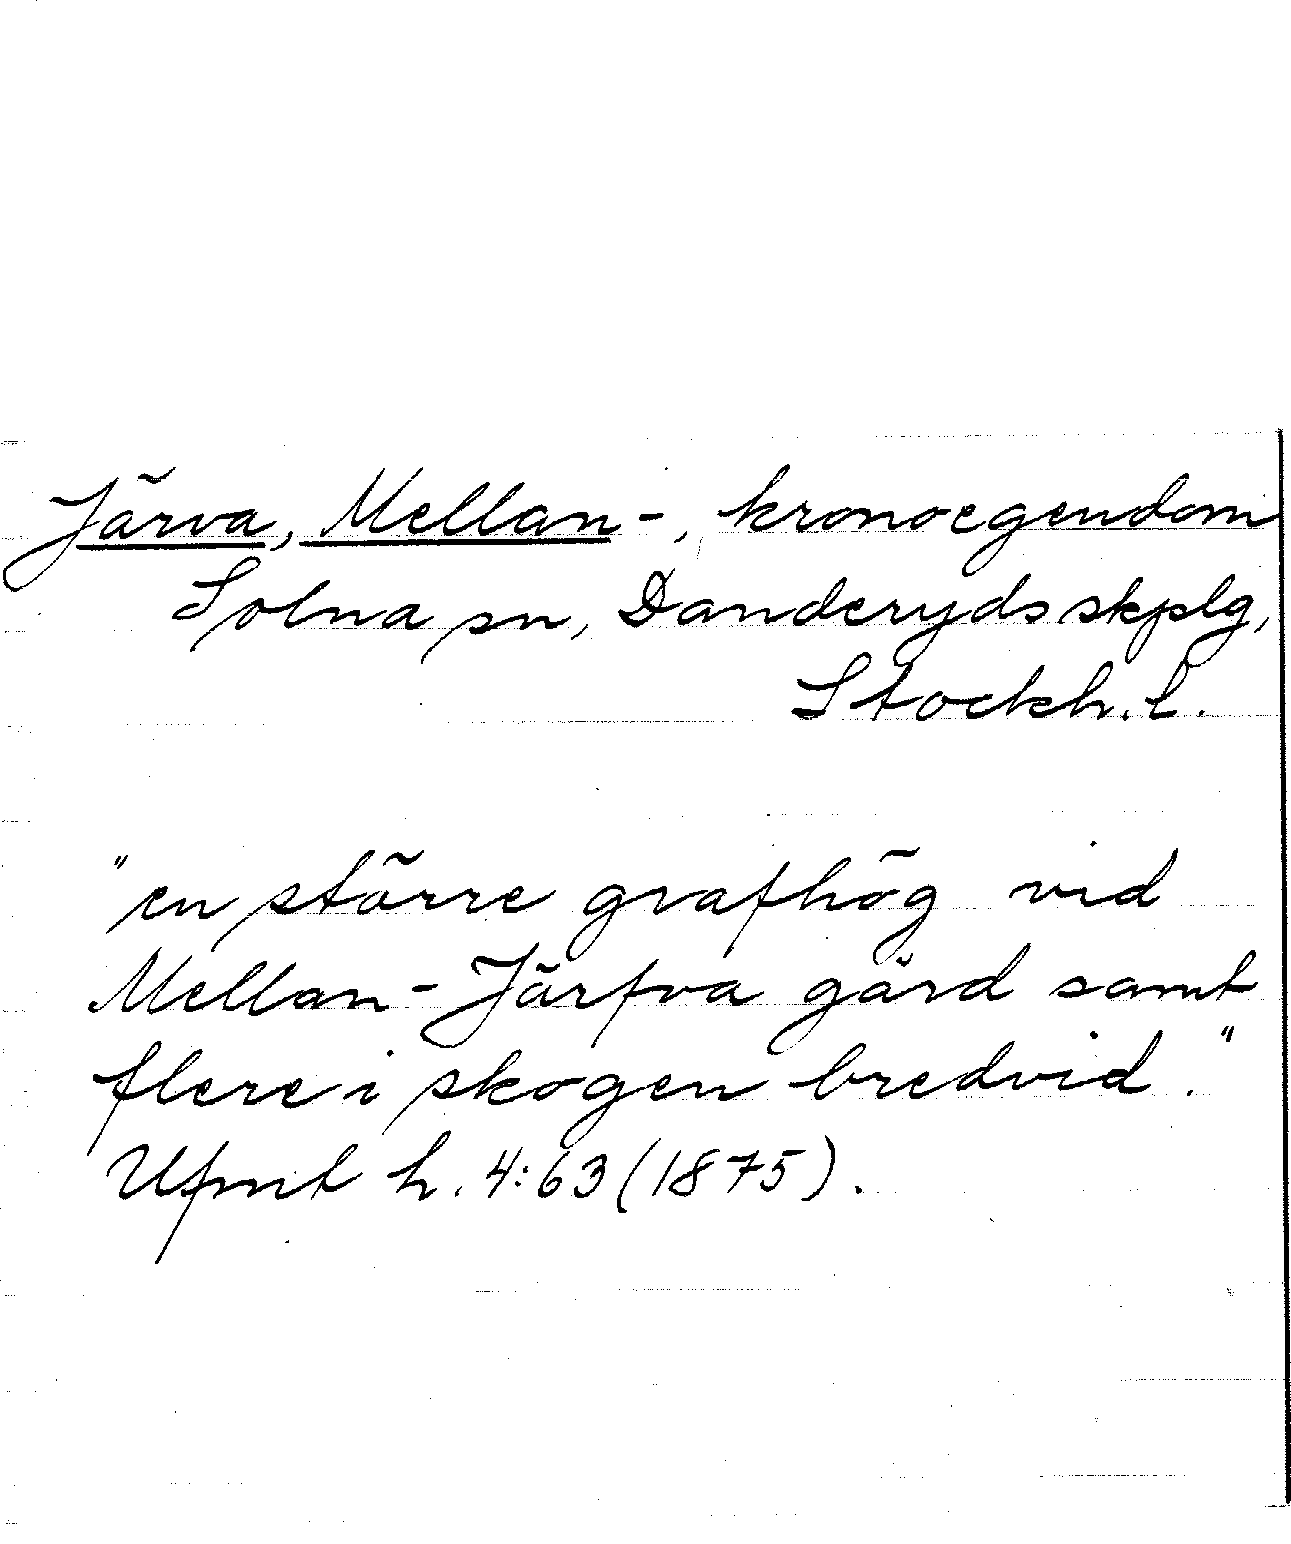 Järva, Mellan-, kronoegendom
Solna sn, Danderyds skplg,
Stockh. l.
"en större grafhög vid
Mellan-Järfva gård samt
flere i skogen bredvid."
Ufmt h. 4:63 (1875).